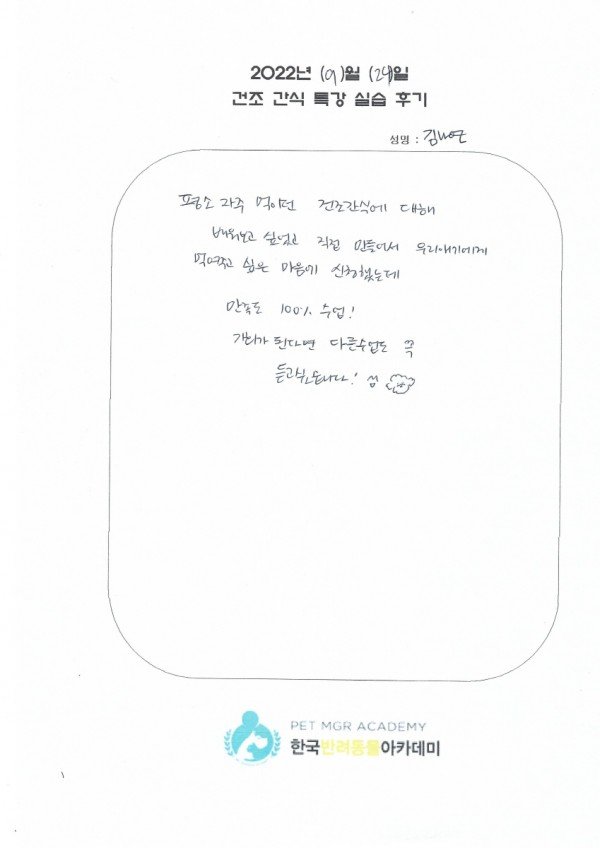 2022년 (9)월 (24)일
건조 간식 특강 실습 후기
성명 :
평소 자주 먹이던 건조간식에 대해
배워보고 싶었고 직접 만들어서 우리애기에게
먹여주고 싶은 마음에 신청했는데
만족도 100% 수업!
기회가 된다면 다른수업도 꼭
듣고싶습니다!
PET MGR ACADEMY
한국반려동물아카데미